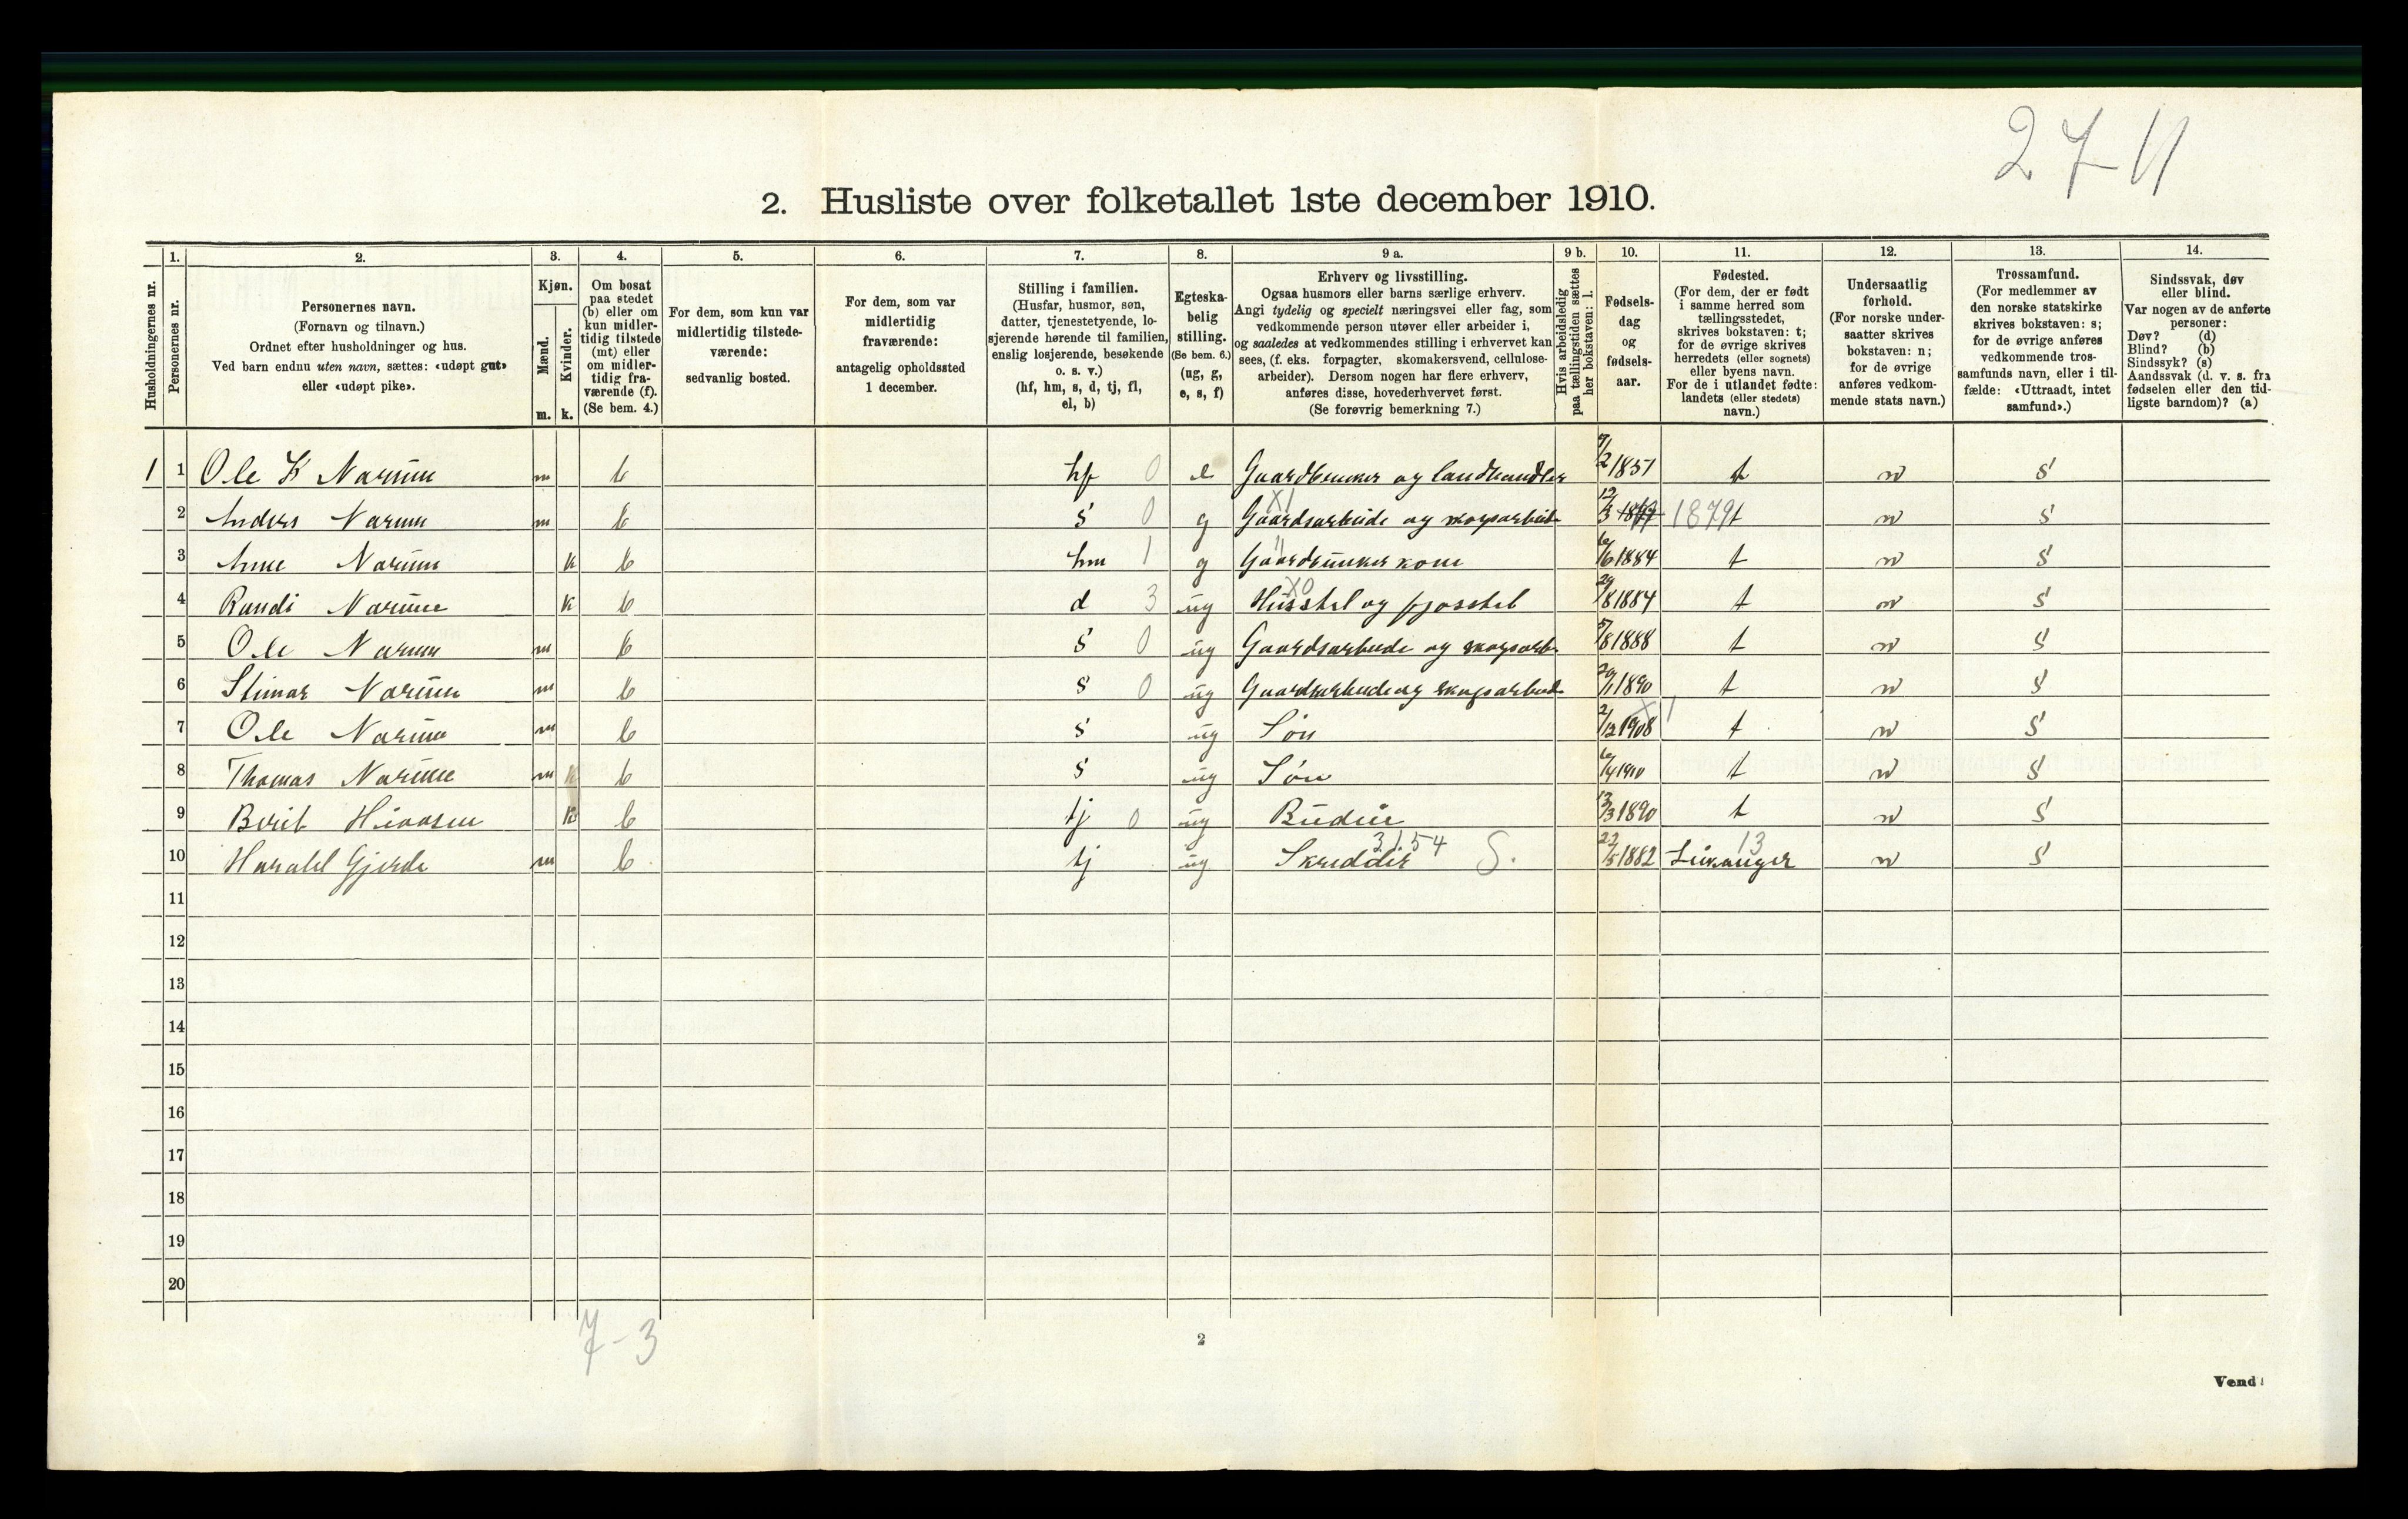 27-11
2. Husliste over folketallet 1ste december 1910.
Husholdningernes nr.
1.
Personernes nr.
2.
Personernes navn.
(Fornavn og tilnavn.)
Ordnet efter husholdninger og hus.
Ved barn endnu uten navn, sættes: «udøpt gut»
eller «udøpt pike».
3.
Kjøn.
Mænd.
m.
Kvinder.
k.
4.
Om bosat
paa stedet
(b) eller om
kun midler-
tidig tilstede
(mt) eller
om midler-
tidig fra-
værende (f).
(Se bem. 4.)
5.
For dem, som kun var
midlertidig tilstede-
værende:
sedvanlig bosted.
6.
For dem, som var
midlertidig
fraværende:
antagelig opholdssted
1 december.
7.
Stilling i familien.
(Husfar, husmor, søn,
datter, tjenestetyende, lo-
sjerende hørende til familien,
enslig losjerende, besøkende
o. s. v.)
(hf, hm, s, d, tj, fl,
el, b)
8.
Egteska-
belig
stilling.
(Se bem. 6.)
(ug, g,
e, s, f)
9 a.
Erhverv og livsstilling.
Ogsaa husmors eller barns særlige erhverv.
Angi tydelig og specielt næringsvei eller fag, som
vedkommende person utøver eller arbeider i,
og saaledes at vedkommendes stilling i erhvervet kan
sees, (f. eks. forpagter, skomakersvend, cellulose-
arbeider). Dersom nogen har flere erhverv,
anføres disse, hovederhvervet først.
(Se forøvrig bemerkning 7.)
9 b.
Hvis arbeidsledig
paa tællingstiden sættes
her bokstaven: l.
10.
Fødsels-
dag
og
fødsels-
aar.
11.
Fødested.
(For dem, der er født
i samme herred som
tællingsstedet,
skrives bokstaven: t;
for de øvrige skrives
herredets (eller sognets)
eller byens navn.
For de i utlandet fødte:
landets (eller stedets)
navn.)
12.
Undersaatlig
forhold.
(For norske under-
saatter skrives
bokstaven: n;
for de øvrige
anføres vedkom-
mende stats navn.)
13.
Trossamfund.
(For medlemmer av
den norske statskirke
skrives bokstaven: s;
for de øvrige anføres
vedkommende tros-
samfunds navn, eller i til-
fælde: «Uttraadt, intet
samfund».)
14.
Sindssvak, døv
eller blind.
Var nogen av de anførte
personer:
Døv? (d)
Blind? (b)
Sindssyk? (s)
Aandssvak (d. v. s. fra
fødselen eller den tid-
ligste barndom)? (a)
1 1 Ole K Narum m b hf 0 e Gaardbruker og landhandler 7/2 1851 t n s
2 Anders Narum m b s 0 g X1 Gaardsarbeide og skogsarbeide 12/3 1879 t n s
3 Anne Narum k b hm 1 g Gaardbrukerkone 6/6 1884 t n s
4 Randi Narum k b d 3 ug X0 Husstel og fjosstel 29/8 1884 t n s
5 Ole Narum m b s 0 ug Gaardsarbeide og skogsarb. 5/8 1888 t n s
6 Stimar Narum m b s 0 ug Gaardsarbeide og skogsarbeid 20/11 1890 t n s
7 Ole Narum m b s ug Søn 2/12 1908 t n s
8 Thomas Narum m b s ug Søn 6/4 1910 t n s
9 Berit k b tj 0 ug Budeie 13/3 1890 t n s
10 Harald Gjerde m b tj ug Skredder 3154 S. 22/5 1882 13 n s
11
12
13
14
15
16
17
18
19
20
7-3
2
Vend!